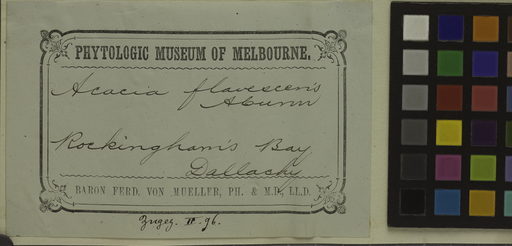 PHYTOLOGIC MUSEUM OF MELBOURNE.
Acacia flavescens
A Cunn
Rockingham's Bay
Dallachy
BARON FERD. VON MUELLER, PH. & M.D., LL.D.
Zugeg. IV. 96.